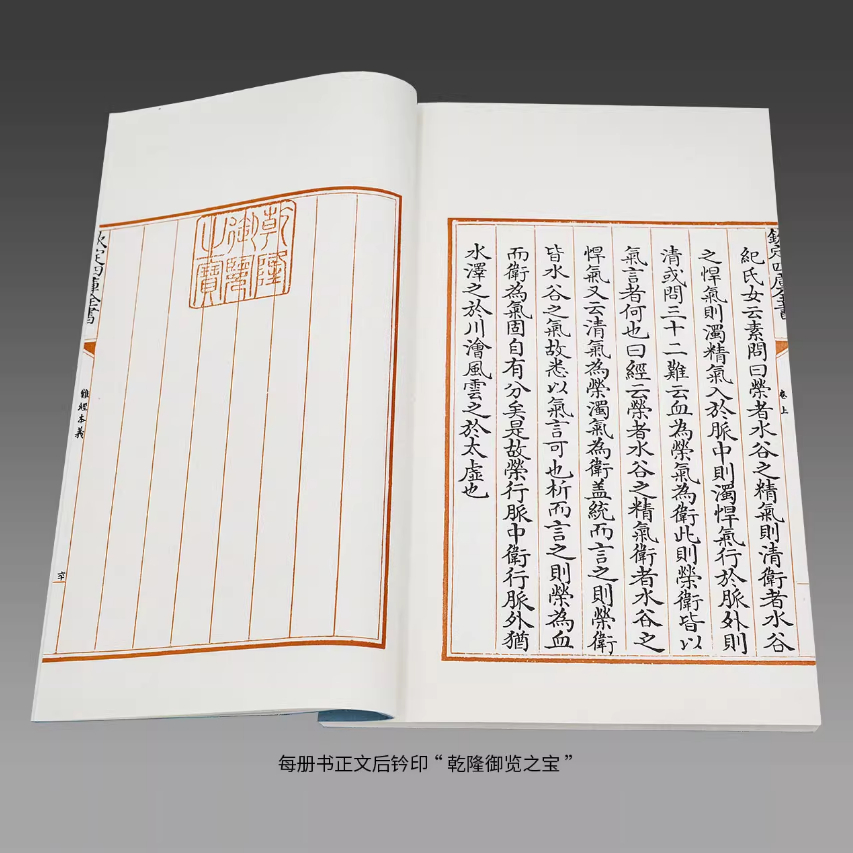 欽定四庫全書
卷上
紀氏女云素問曰榮者水谷之精氣則清衛者水谷
之悍氣則濁精氣入於脈中則濁悍氣行於脈外則
清或問三十二難云血為榮氣為衛此則榮衛皆以
氣言者何也曰經云榮者水谷之精氣衛者水谷之
悍氣又云清氣為榮濁氣為衛盖統而言之則榮衛
皆水谷之氣故悉以氣言可也析而言之則榮為血
而衛為氣固自有分矣是故榮行脈中衛行脈外猶
水澤之於川澮風雲之於太虛也
乾隆
御覽
之寶
欽定四庫全書
難經本義
每册书正文后钤印“乾隆御览之宝”